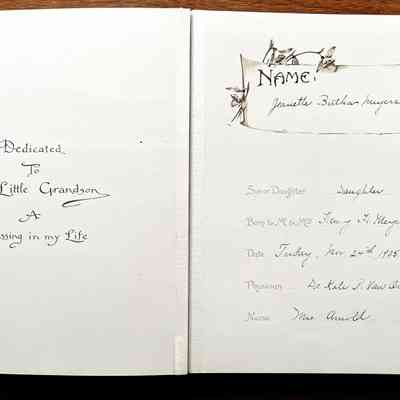 Dedicated
To
Little Grandson
A
ssing in my Life
NAME:
Jeanette Bertha Meyers
Son or Daughter Daughter
Born to Mr. & Mrs. Henry H. Meye
Date Friday, Nov. 24th 1905
Physician Dr. Kate P. Van
Nurse Mrs. Arnold